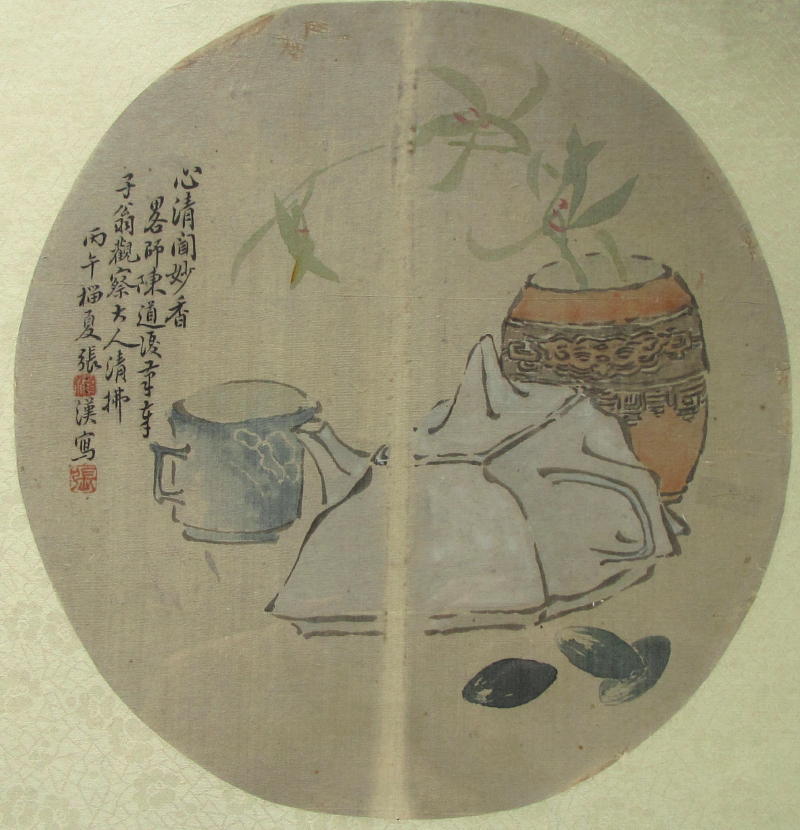 心清闻妙香
畧师陈道复笔意
子翁觀察大人清拂
丙午榴夏張
漢寫